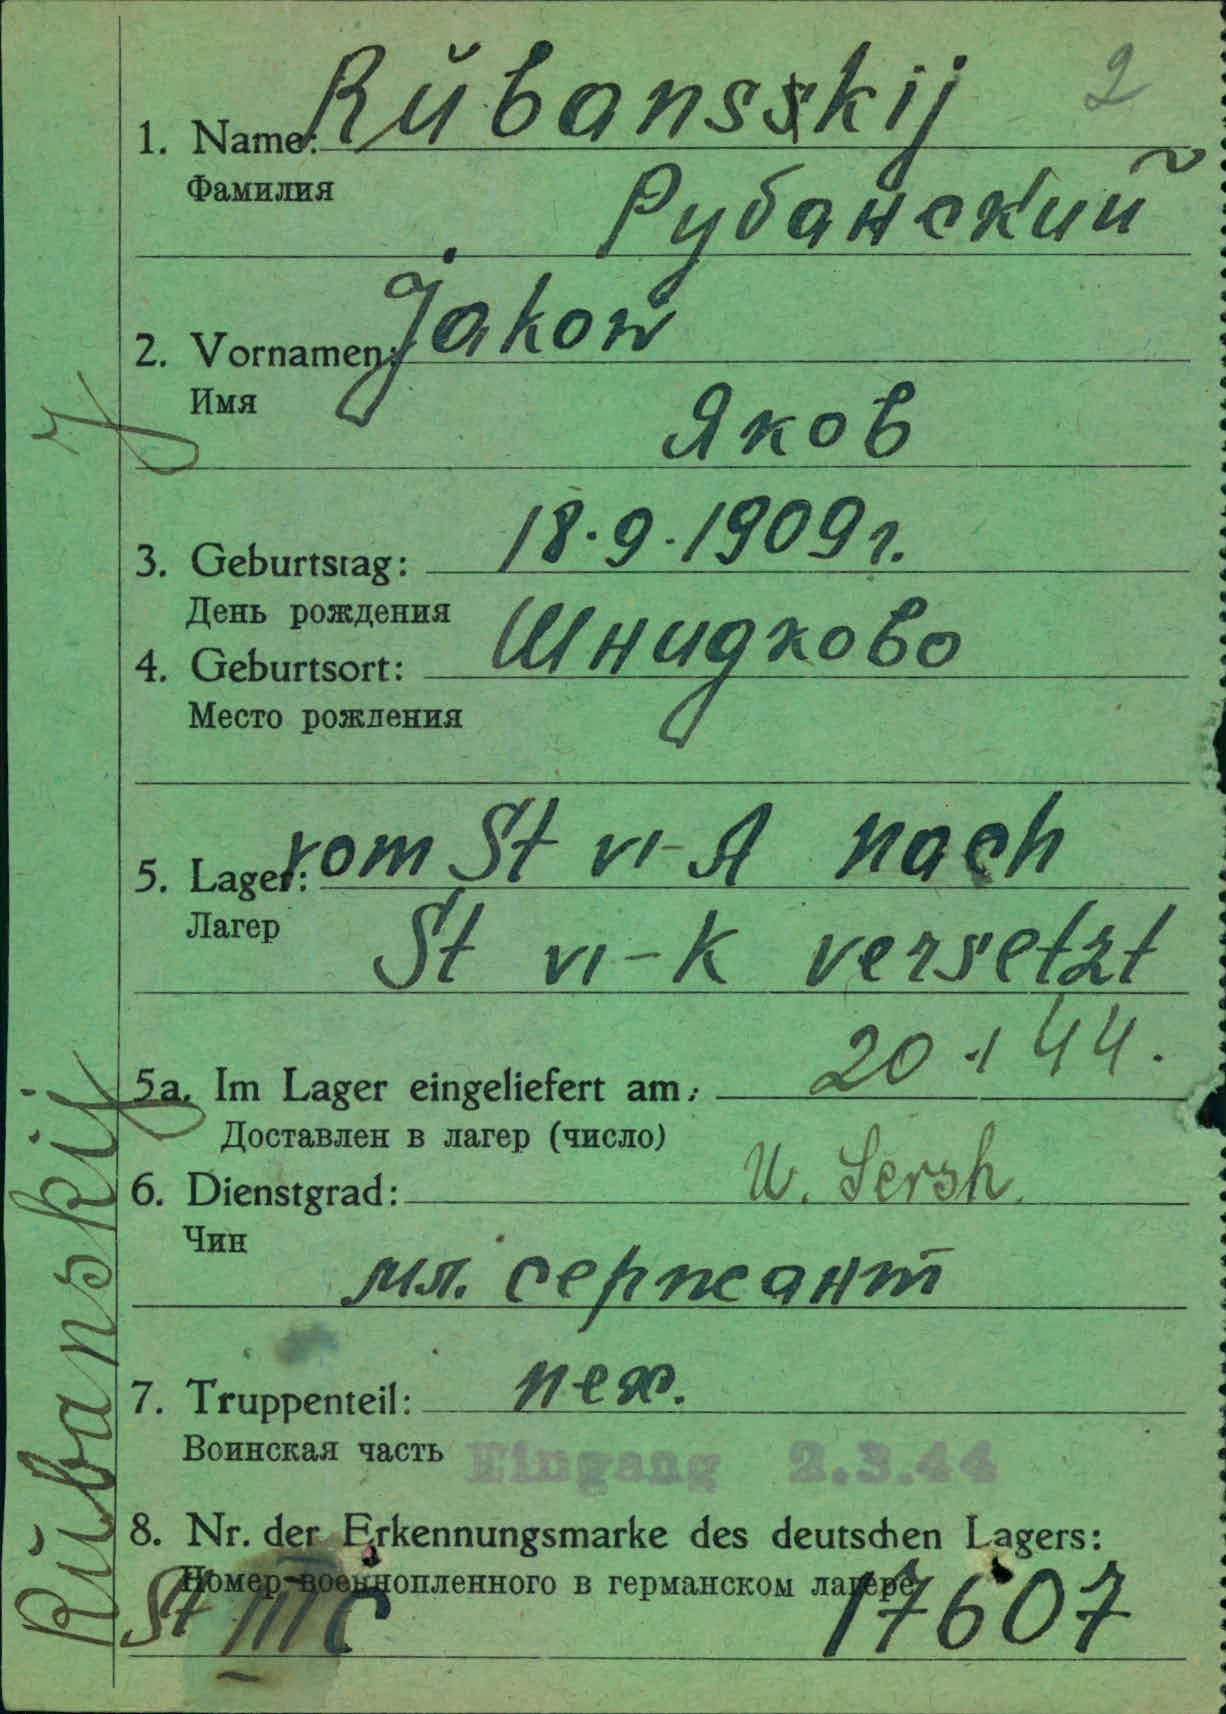 2
Rŭbansskij
1. Name:
Фамилия
Рубанский
Jakow
2. Vornamen:
Имя
Яков
3. Geburtstag: 18.9.1909г.
День рождения
4. Geburtsort: Шнидково
Место рождения
5. Lager: vom St VI-A nach
Лагер
St VI-K versetzt
5a. Im Lager eingeliefert am: 20.1 44.
Доставлен в лагер (число)
6. Dienstgrad: U. Sersh.
Чин
мл. сержант
7. Truppenteil: пех.
Воинская часть
Eingang 2.3.44
8. Nr. der Erkennungsmarke des deutschen Lagers:
Номер военнопленного в германском лагере
St III C 17607
Rŭbanskij J